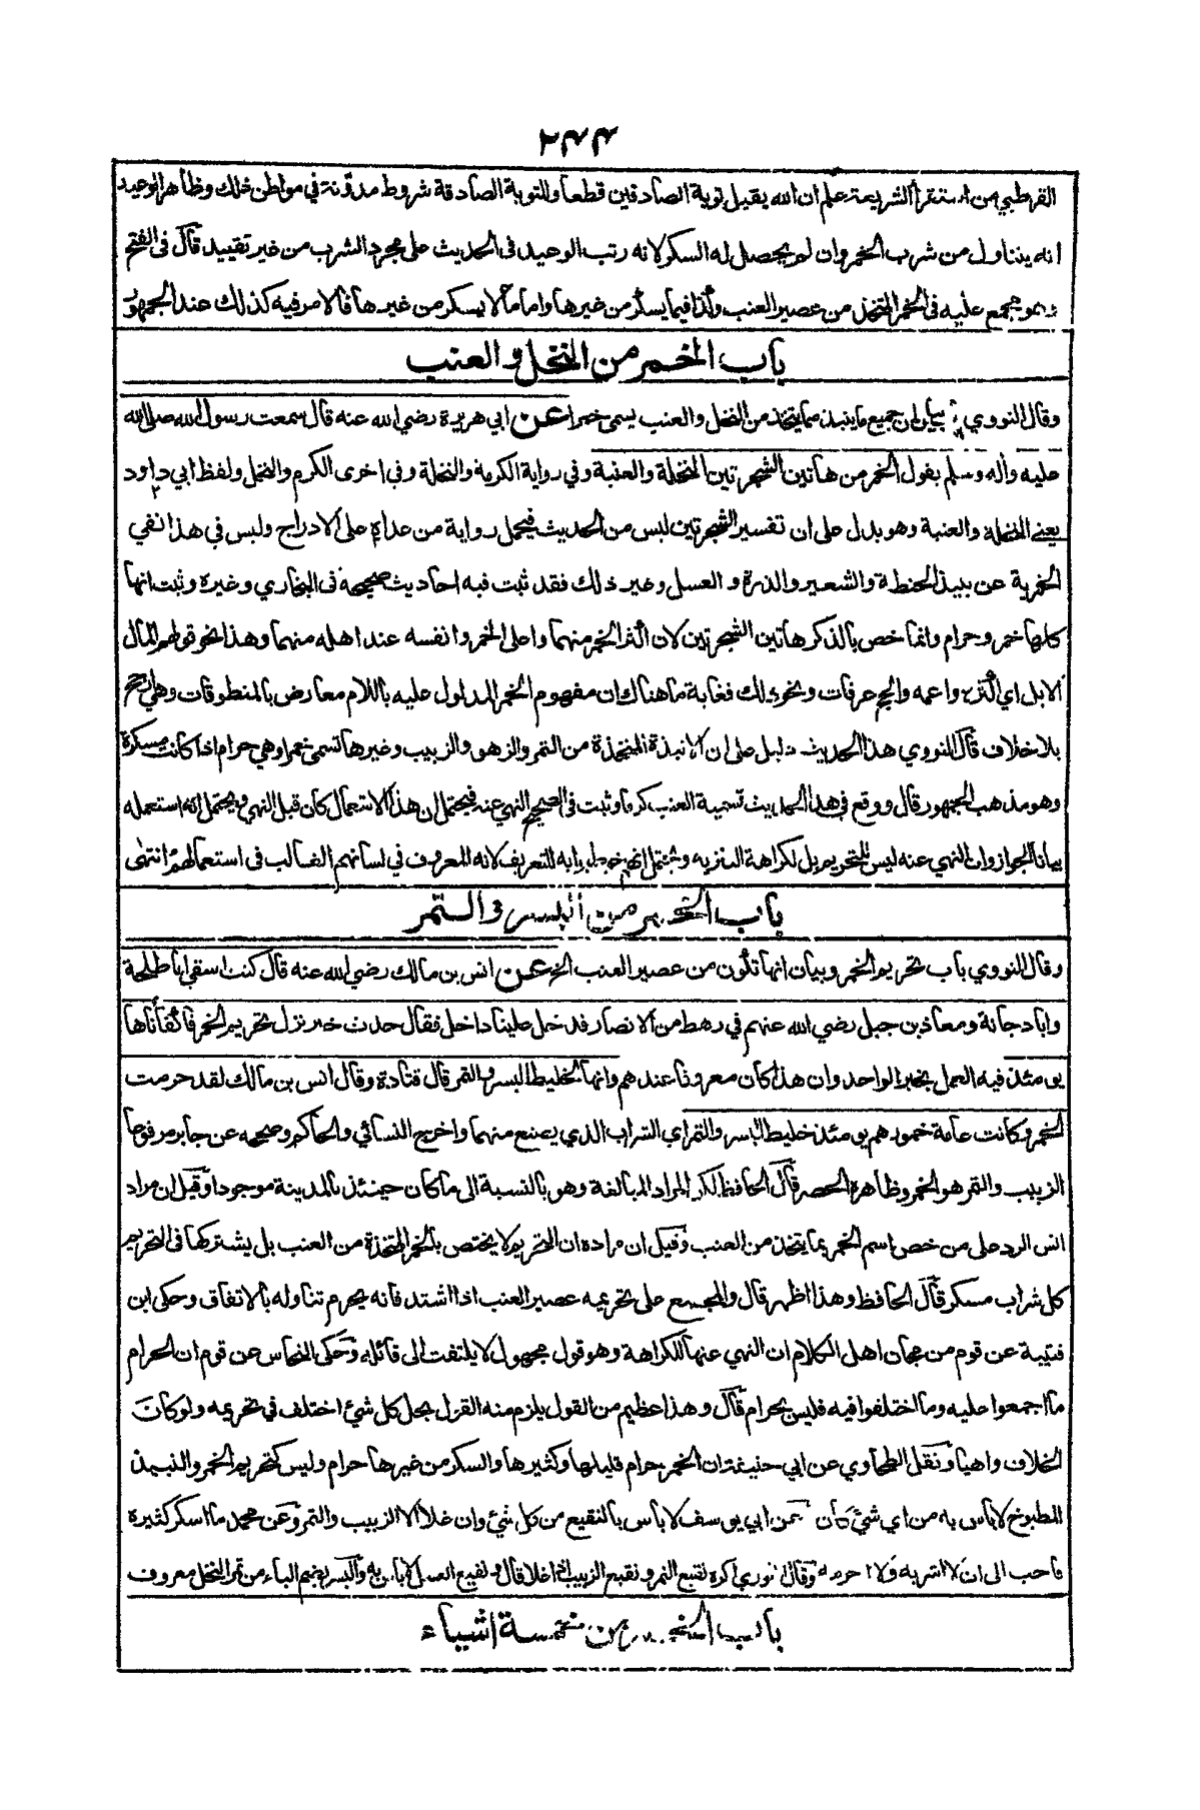 ٢٣٣
القرطبي من استقرأ الشريعة علم ان الله يقبل توبة الصادقين قطعا وللتوبة الصادقة شروط مدونة في مواطن ذلك وظاهر الوعيد
انه يتناول من شرب الخمر وان لم يحصل له السكر لانه رتب الوعيد في الحديث على مجرد الشرب من غير تقييد قال في الفتح
وهو مجمع عليه في الخمر المتخذ من عصير العنب وكذا فيما يسكر من غيرها واما ما لا يسكر من غيرها فالامر فيه كذلك عند الجمهور
باب الخمر من النخل والعنب
وقال النووي بيان ان جميع ما ينبذ مما يتخذ من النخل والعنب يسمى خمرا عن ابي هريرة رضي الله عنه قال سمعت رسول الله صلى الله
عليه وآله وسلم يقول الخمر من هاتين الشجرتين النخلة والعنبة وفي رواية الكرمة والنخلة وفي اخرى الكرم والنخل ولفظ ابي داود
يعني النخلة والعنبة وهو يدل على ان تفسير الشجرتين ليس من الحديث فيحمل رواية من عداه على الادراج وليس في هذا نفي
الخمرية عن نبيذ الحنطة والشعير والذرة و العسل وغير ذلك فقد ثبت فيه احاديث صحيحة في البخاري وغيره وثبت انها
كلها خمر وحرام وانما خص بالذكر هاتين الشجرتين لان اكثر الخمر منهما واعلى الخمر وانفسه عند اهله منهما وهذا نحو قولهم المال
الابل اي اكثره واعمه والحج عرفات ونحو ذلك فغاية ما هناك ان مفهوم الخمر المدلول عليه باللام معارض بالمنطوقات وهي ارجح
بلا خلاف قال النووي هذا الحديث دليل على ان الانبذة المتخذة من التمر والزهو والزبيب وغيرها تسمى خمرا وهي حرام اذا كانت مسكرة
وهو مذهب الجمهور قال ووقع في هذا الحديث تسمية العنب كرما وثبت في الصحيح النهي عنه فيحتمل ان هذا الاستعمال كان قبل النهي ويحتمل انه استعمله
بيانا للجواز وان النهي عنه ليس للتحريم بل لكراهة التنزيه ويحتمل انهم خوطبوا به للتعريف لانه المعروف في لسانهم الغالب في استعمالهم انتهى
باب الخمر من البسر والتمر
وقال النووي باب تحريم الخمر وبيان انها تكون من عصير العنب الخ عن انس بن مالك رضي الله عنه قال كنت اسقي ابا طلحة
وابا دجانة ومعاذ بن جبل رضي الله عنهم في رهط من الانصار فدخل علينا داخل فقال حدث خبر نزل تحريم الخمر فاكفأناها
يومئذ فيه العمل بخبر الواحد وان هذا كان معروفا عندهم وانها لخليط البسر والتمر قال قتادة وقال انس بن مالك لقد حرمت
الخمر وكانت عامة خمورهم يومئذ خليط البسر والتمر اي الشراب الذي يصنع منهما واخرج النسائي والحاكم وصححه عن جابر مرفوعا
الزبيب والتمر هو الخمر وظاهره الحصر قال الحافظ لكن المراد المبالغة وهو بالنسبة الى ما كان حينئذ بالمدينة موجودا وقيل ان مراد
انس الرد على من خص اسم الخمر بما يتخذ من العنب وقيل ان مراده ان التحريم لا يختص بالخمر المتخذة من العنب بل يشتركها في التحريم
كل شراب مسكر قال الحافظ وهذا اظهر قال والمجمع على تحريمه عصير العنب اذا اشتد فانه يحرم تناوله بالاتفاق وحكى ابن
قتيبة عن قوم من مجان اهل الكلام ان النهي عنها للكراهة وهو قول مجهول لا يلتفت الى قائله وحكى النحاس عن قوم ان الحرام
ما اجمعوا عليه وما اختلفوا فيه فليس بحرام قال وهذا عظيم من القول يلزم منه القول بحل كل شيء اختلف في تحريمه ولو كان
الخلاف واهيا ونقل الطحاوي عن ابي حنيفة ان الخمر حرام قليلها وكثيرها والسكر من غيرها حرام وليس كتحريم الخمر والنبيذ
المطبوخ لا بأس به من اي شيء كان عن ابي يوسف لا بأس بالنقيع من كل شيء وان غلا الا الزبيب والتمر وعن محمد ما اسكر كثيره
فاحب الى ان لا اشربه ولا احرمه وقال الثوري اكره نقيع التمر ونقيع الزبيب اذا غلا قال ونقيع العسل لا بأس به والبسر بضم الباء من ثمر النخل معروف
باب الخمر من خمسة اشياء